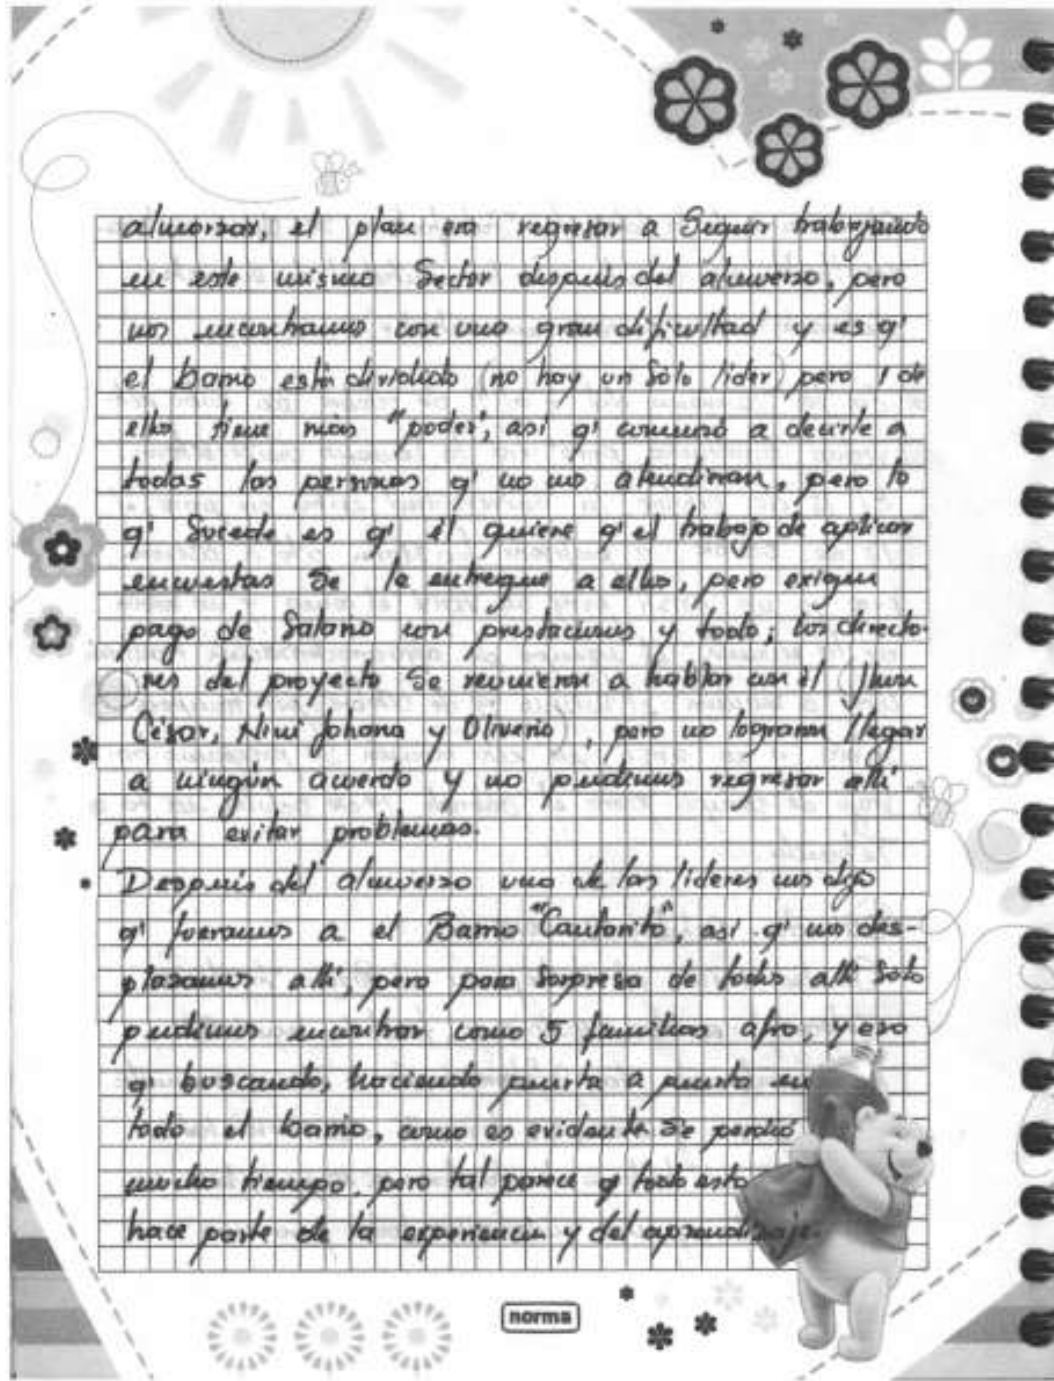 almorzar, el plan era regresar a Seguir trabajando
en este mismo Sector después del almuerzo, pero
nos encontramos con una gran dificultad y es q'
el barrio está dividido (no hay un sólo líder) pero 1 de
ellos tiene más "poder", así q' comenzó a decirle a
todas las personas q' no nos atendieran, pero lo
q' Sucede es q' él quiere q' el trabajo de aplicar
encuestas Se le entregue a ellos, pero exigen
pago de Salario con prestaciones y todo; los directo-
res del proyecto Se reunieron a hablar con él (Jhon
César, Nini Johana y Oliverio), pero no lograron llegar
a ningún acuerdo y no pudimos regresar allí
para evitar problemas.
Después del almuerzo uno de los líderes nos dijo
q' fueramos a el Barrio "Cantarito", así q' nos des-
plazamos allí, pero para Sorpresa de todos allí Sólo
pudimos encontrar como 5 familias afro, y eso
q' buscando, haciendo puerta a puerta en
todo el barrio, como es evidente Se perdió
mucho tiempo, pero tal parece q' todo esto
hace parte de la experiencia y del aprendizaje.
norma